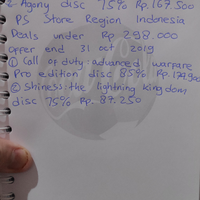 2. Agony disc 75% Rp. 167.500
PS Store Region Indonesia
Deals under Rp 298.000
offer end 31 oct 2019
① Call of duty: advanced warfare
Pro edition disc 85% Rp. 174.900
② Shiness: the lightning kingdom
disc 75% Rp. 87.250